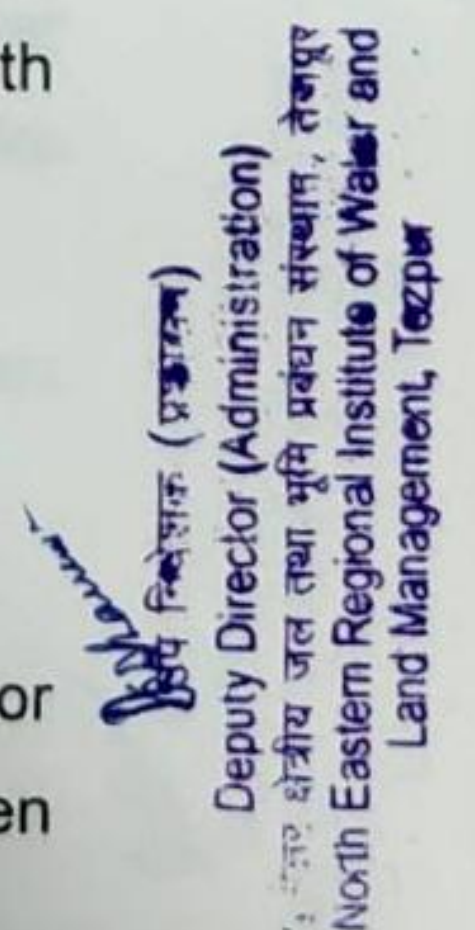 th
or
en
उप निदेशक (प्रशासन)
Deputy Director (Administration)
क्षेत्रीय जल तथा भूमि प्रबंधन संस्थान, तेजपुर
North Eastern Regional Institute of Water and
Land Management, Tezpur